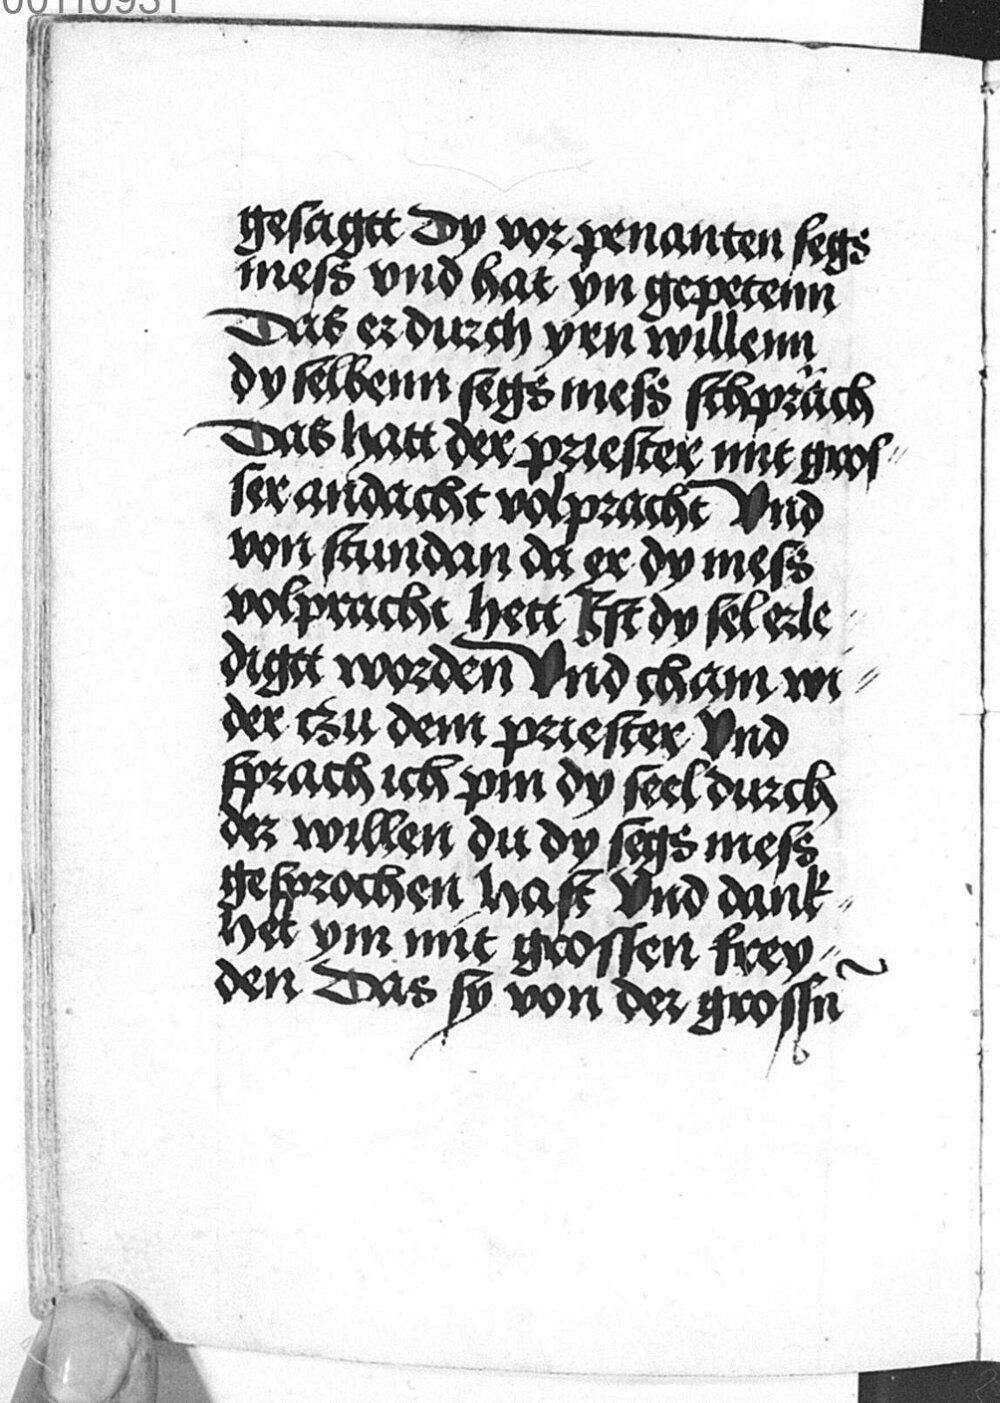 00110931
gesagtt Dy vor penanten segs
mess vnd hat yn gepetenn
Das er durch yren willenn
dy selbenn segs mess schpräch
Das hatt der priester mit gros"
ser andacht volpracht Vnd
von stundan da er dy mess
volpracht hett Ist dy sel erle"
digtt worden Vnd cham wi"
der tzu dem priester Vnd
sprach ich pin dy seel durch
der willen du dy segs mess
gesprochen hast Vnd dank"
het ym mit grossen frey"
den Das sy von der grossn̄